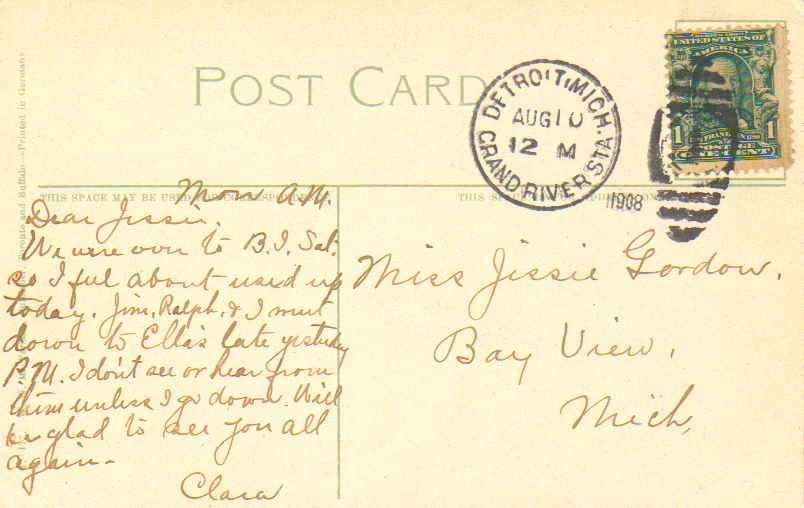 POST CARD
DETROIT, MICH.
AUG 10
12 M
GRAND RIVER STA.
1908
UNITED STATES OF
AMERICA
1 FRANKLIN 1
POSTAGE
ONE CENT
THIS SPACE MAY BE USED
THIS SPACE
Toronto and Buffalo—Printed in Germany
Mon A.M.
Dear Jessie.
We were over to B.I. Sat.
so I feel about used up
today. Jim, Ralph, & I went
down to Ella's late yesterday
P.M. I don't see or hear from
them unless I go down. Will
be glad to see you all
again—
Clara
Miss Jessie Gordon.
Bay View,
Mich,